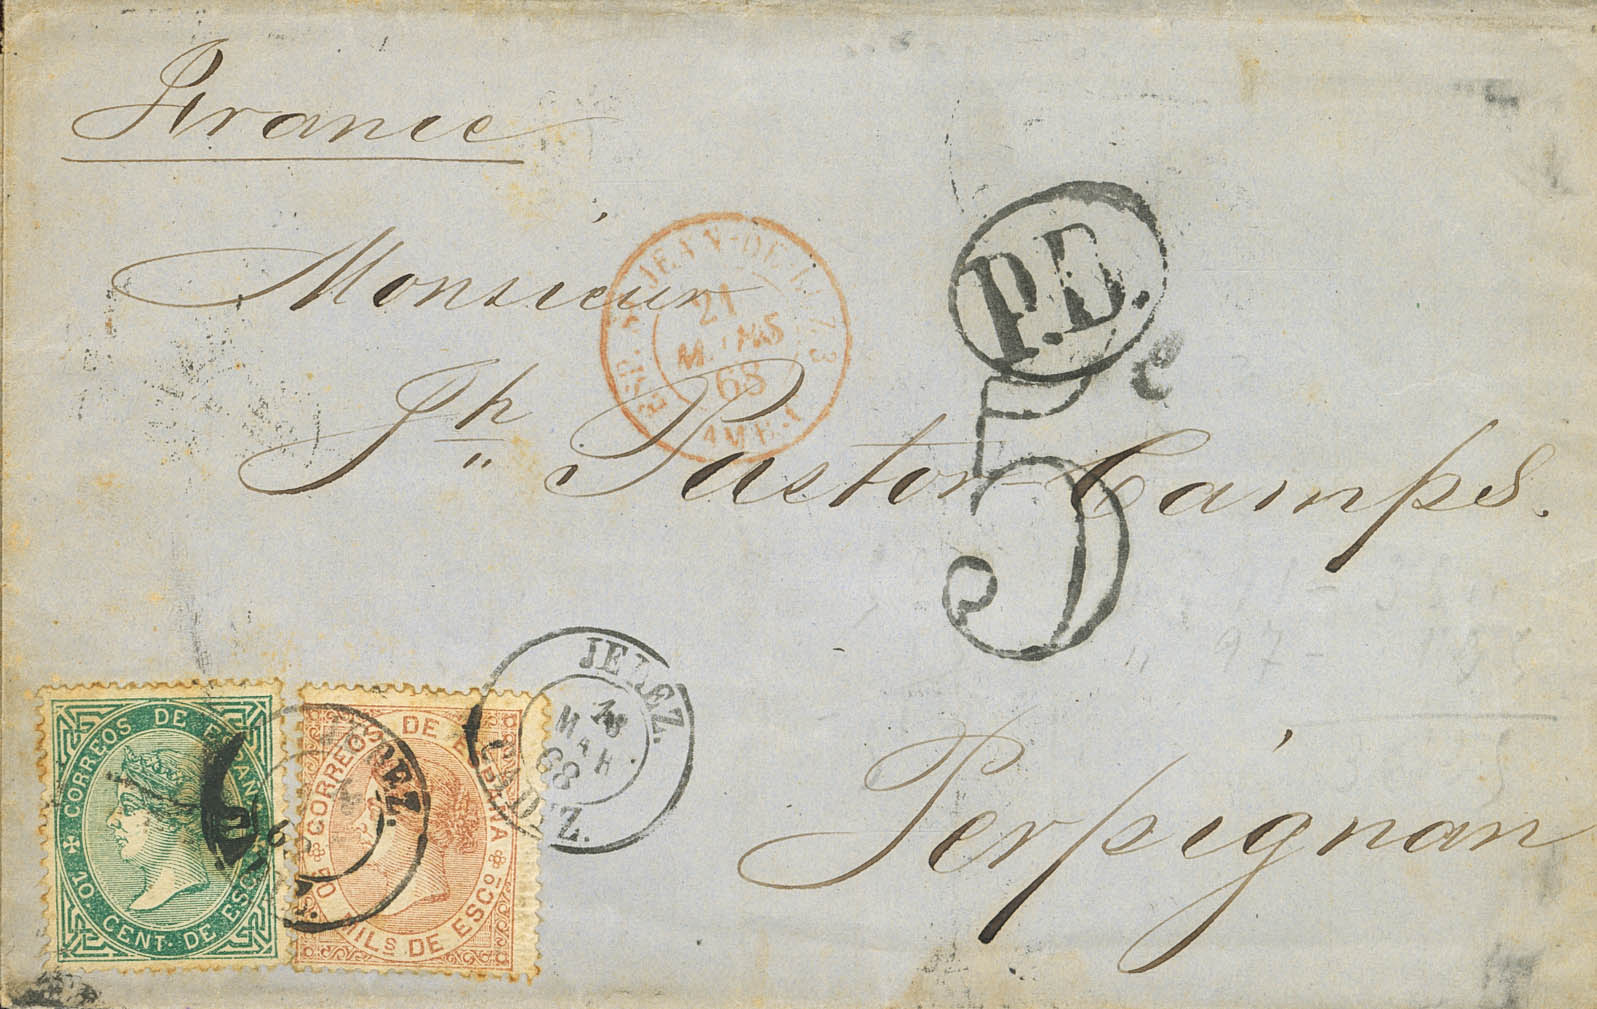 France
Monsieur
Jh Paston Camps.
Perpignan
P.D.
5 c
ESP. St JEAN-DE-LUZ 3
21
MARS
68
AMB. 1
JEREZ.
MAR
68
CADIZ.
CORREOS DE ESPAÑA
10 CENT. DE ESCO
CORREOS DE ESPAÑA
50 MILs DE ESCo
JEREZ.